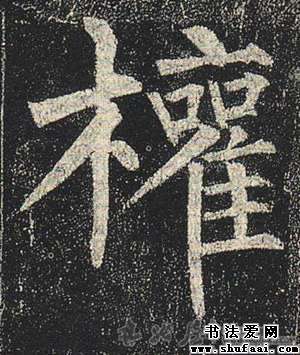 權
书法爱网
www.shufaai.com